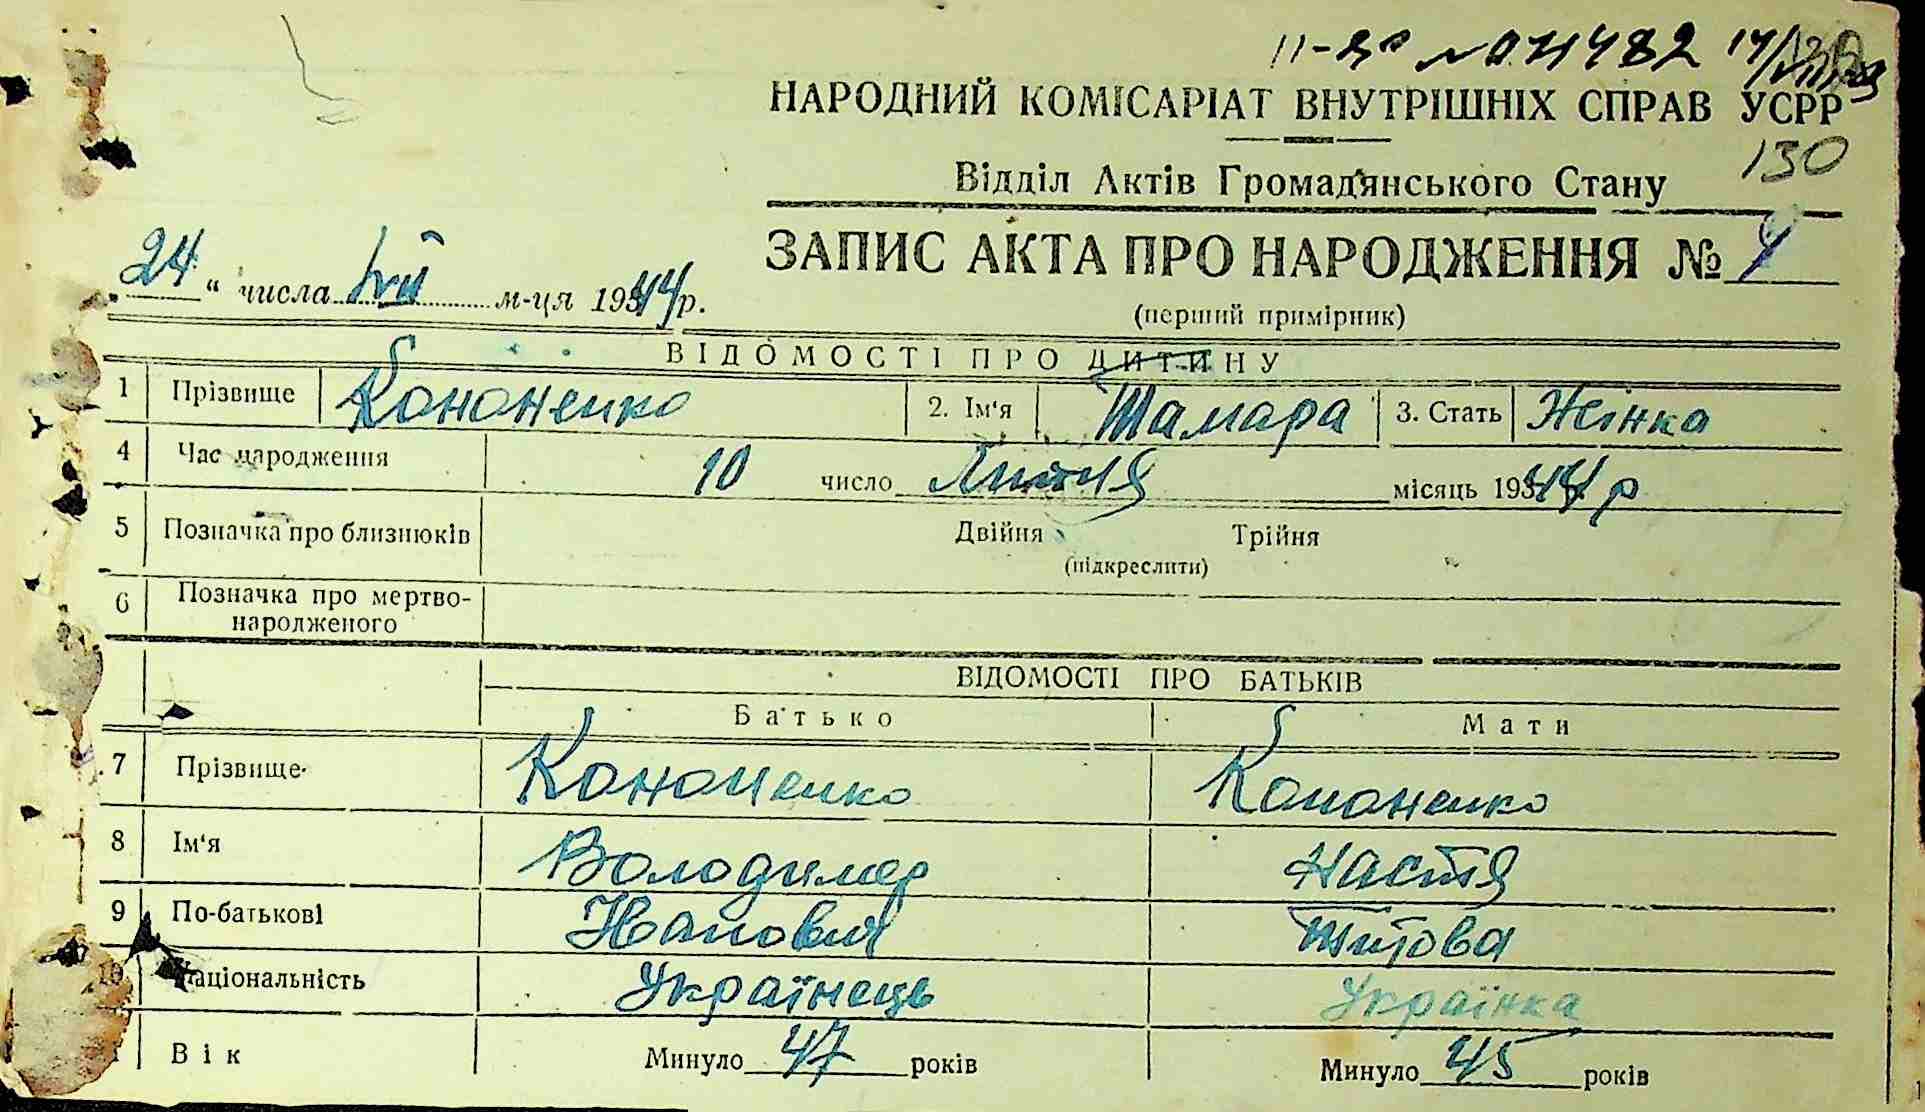 11-ЯР № 071482 14/VIII
НАРОДНИЙ КОМІСАРІАТ ВНУТРІШНІХ СПРАВ УСРР
130
Відділ Актів Громадянського Стану
ЗАПИС АКТА ПРО НАРОДЖЕННЯ №
„24“ числа м-ця 1944 р.
(перший примірник)
ВІДОМОСТІ ПРО ДИТИНУ
1 Прізвище Кононенко 2. Ім'я Тамара 3. Стать Жінка
4 Час народження 10 число Литня місяць 1944 р
5 Позначка про близнюків Двійня Трійня
(підкреслити)
6 Позначка про мертво-
народженого
ВІДОМОСТІ ПРО БАТЬКІВ
Батько Мати
7 Прізвище Кононенко Кононенко
8 Ім'я Володимер Настя
9 По-батькові Титова
10 Національність Українець Українка
Вік Минуло 47 років Минуло 45 років